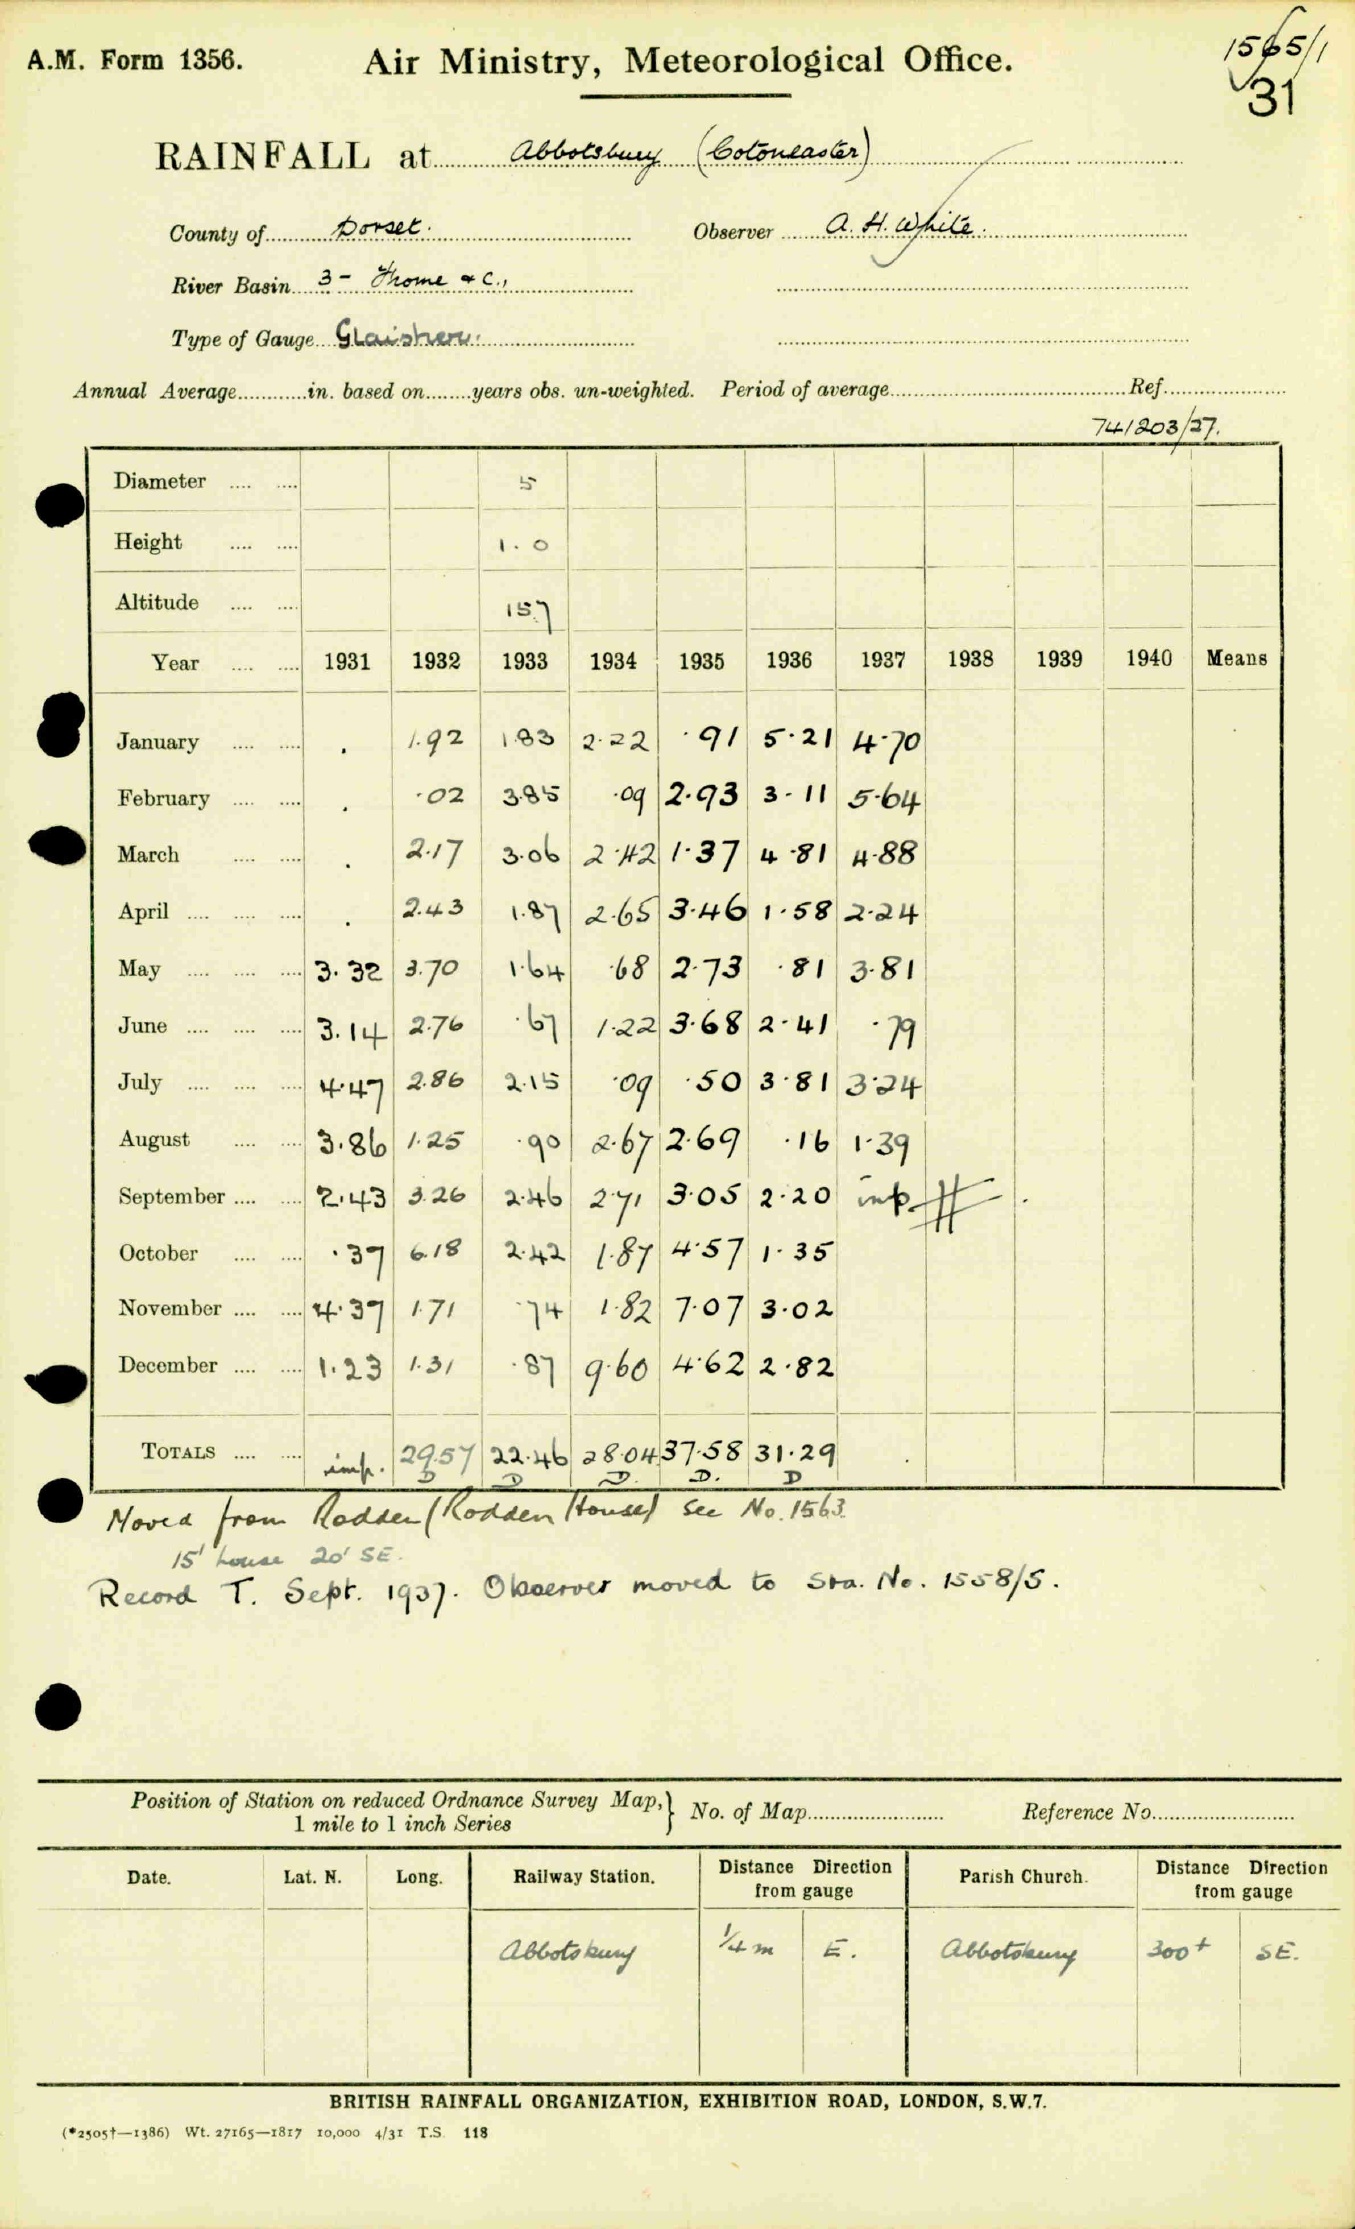 1565/1
A.M. Form 1356. Air Ministry, Meteorological Office.
31
RAINFALL at Abbotsbury (Cotoneaster)
County of Dorset. Observer A. H. White.
River Basin 3 - Frome & C.,
Type of Gauge Glaisher.
Annual Average in. based on years obs. un-weighted. Period of average Ref.
741203/27.
Diameter 5
Height 1.0
Altitude 157
Year 1931 1932 1933 1934 1935 1936 1937 1938 1939 1940 Means
January . 1.92 1.83 2.22 .91 5.21 4.70
February . .02 3.85 .09 2.93 3.11 5.64
March . 2.17 3.06 2.42 1.37 4.81 4.88
April . 2.43 1.87 2.65 3.46 1.58 2.24
May 3.32 3.70 1.64 .68 2.73 .81 3.81
June 3.14 2.76 .67 1.22 3.68 2.41 .79
July 4.47 2.86 2.15 .09 .50 3.81 3.24
August 3.86 1.25 .90 2.67 2.69 .16 1.39
September 2.43 3.26 2.46 2.71 3.05 2.20 imp
October .37 6.18 2.42 1.87 4.57 1.35
November 4.37 1.71 .74 1.82 7.07 3.02
December 1.23 1.31 .87 9.60 4.62 2.82
TOTALS imp. 29.57 22.46 28.04 37.58 31.29
D D D D. D
Moved from Rodden (Rodden House) see No. 1563.
15' house 20' SE.
Record T. Sept. 1937. Observer moved to Sta. No. 1558/5.
Position of Station on reduced Ordnance Survey Map, 1 mile to 1 inch Series } No. of Map Reference No.
Date. Lat. N. Long. Railway Station. Distance Direction from gauge Parish Church. Distance Direction from gauge
Abbotsbury 1/4 m E. Abbotsbury 300+ SE.
BRITISH RAINFALL ORGANIZATION, EXHIBITION ROAD, LONDON, S.W.7.
(*2505†—1386) Wt. 27165—1817 10,000 4/31 T.S. 118